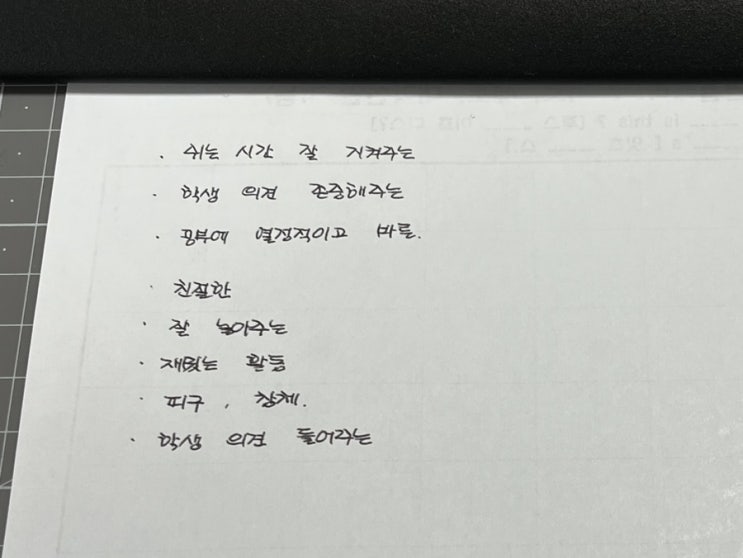 · 쉬는 시간 잘 지켜주는
· 학생 의견 존중해주는
· 공부에 열정적이고 바른.
· 친절한
· 잘 놀아주는
· 재밌는 활동
· 피구, 창체.
· 학생 의견 들어주는